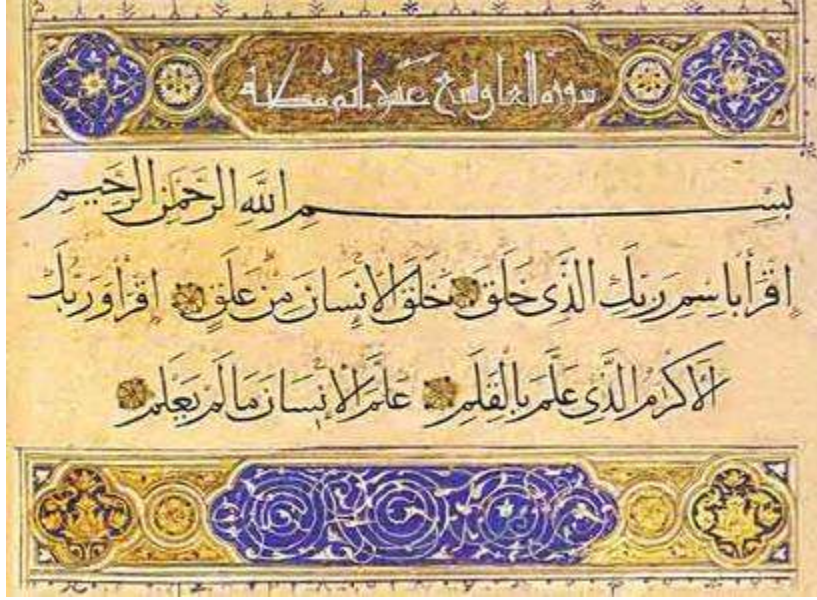 سورة العلق تسع عشرة آية مكية
بِسْمِ اللَّهِ الرَّحْمَنِ الرَّحِيمِ
اِقْرَأْ بِاسْمِ رَبِّكَ الَّذِى خَلَقَ خَلَقَ الْاِنْسَانَ مِنْ عَلَقٍ اِقْرَأْ وَرَبُّكَ
الْاَكْرَمُ الَّذِى عَلَّمَ بِالْقَلَمِ عَلَّمَ الْاِنْسَانَ مَا لَمْ يَعْلَمْ